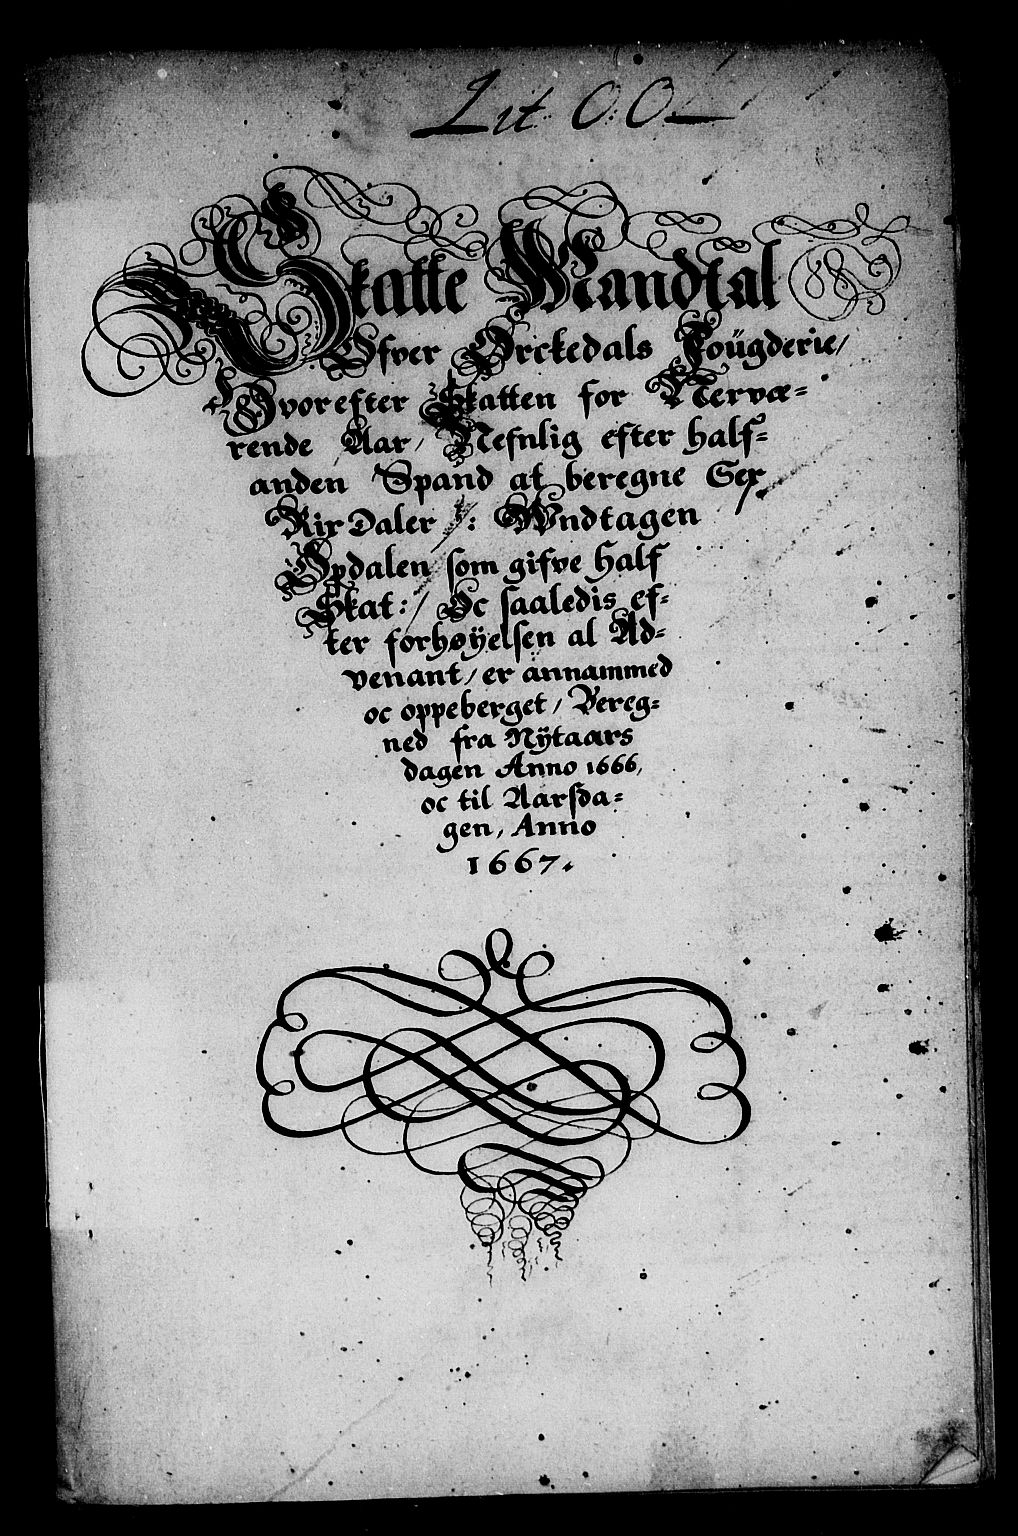 Lit: O:O:
Skatte Mandtal
Ofver Ørckedals Foügderie/
Hvorefter Skatten for Nervæ=
rende Aar/ Nefnlig efter half=
anden Spand at beregne Sex
Rix Daler /: Wndtagen
Opdalen som gifve half
Skat: / Oc saaledis ef=
ter forhøÿelsen al Ad=
venant/ er annammed
oc oppeberget/ Bereg=
ned fra Nÿtaars
dagen Anno 1666,
oc til Aarsda=
gen, Anno
1667.